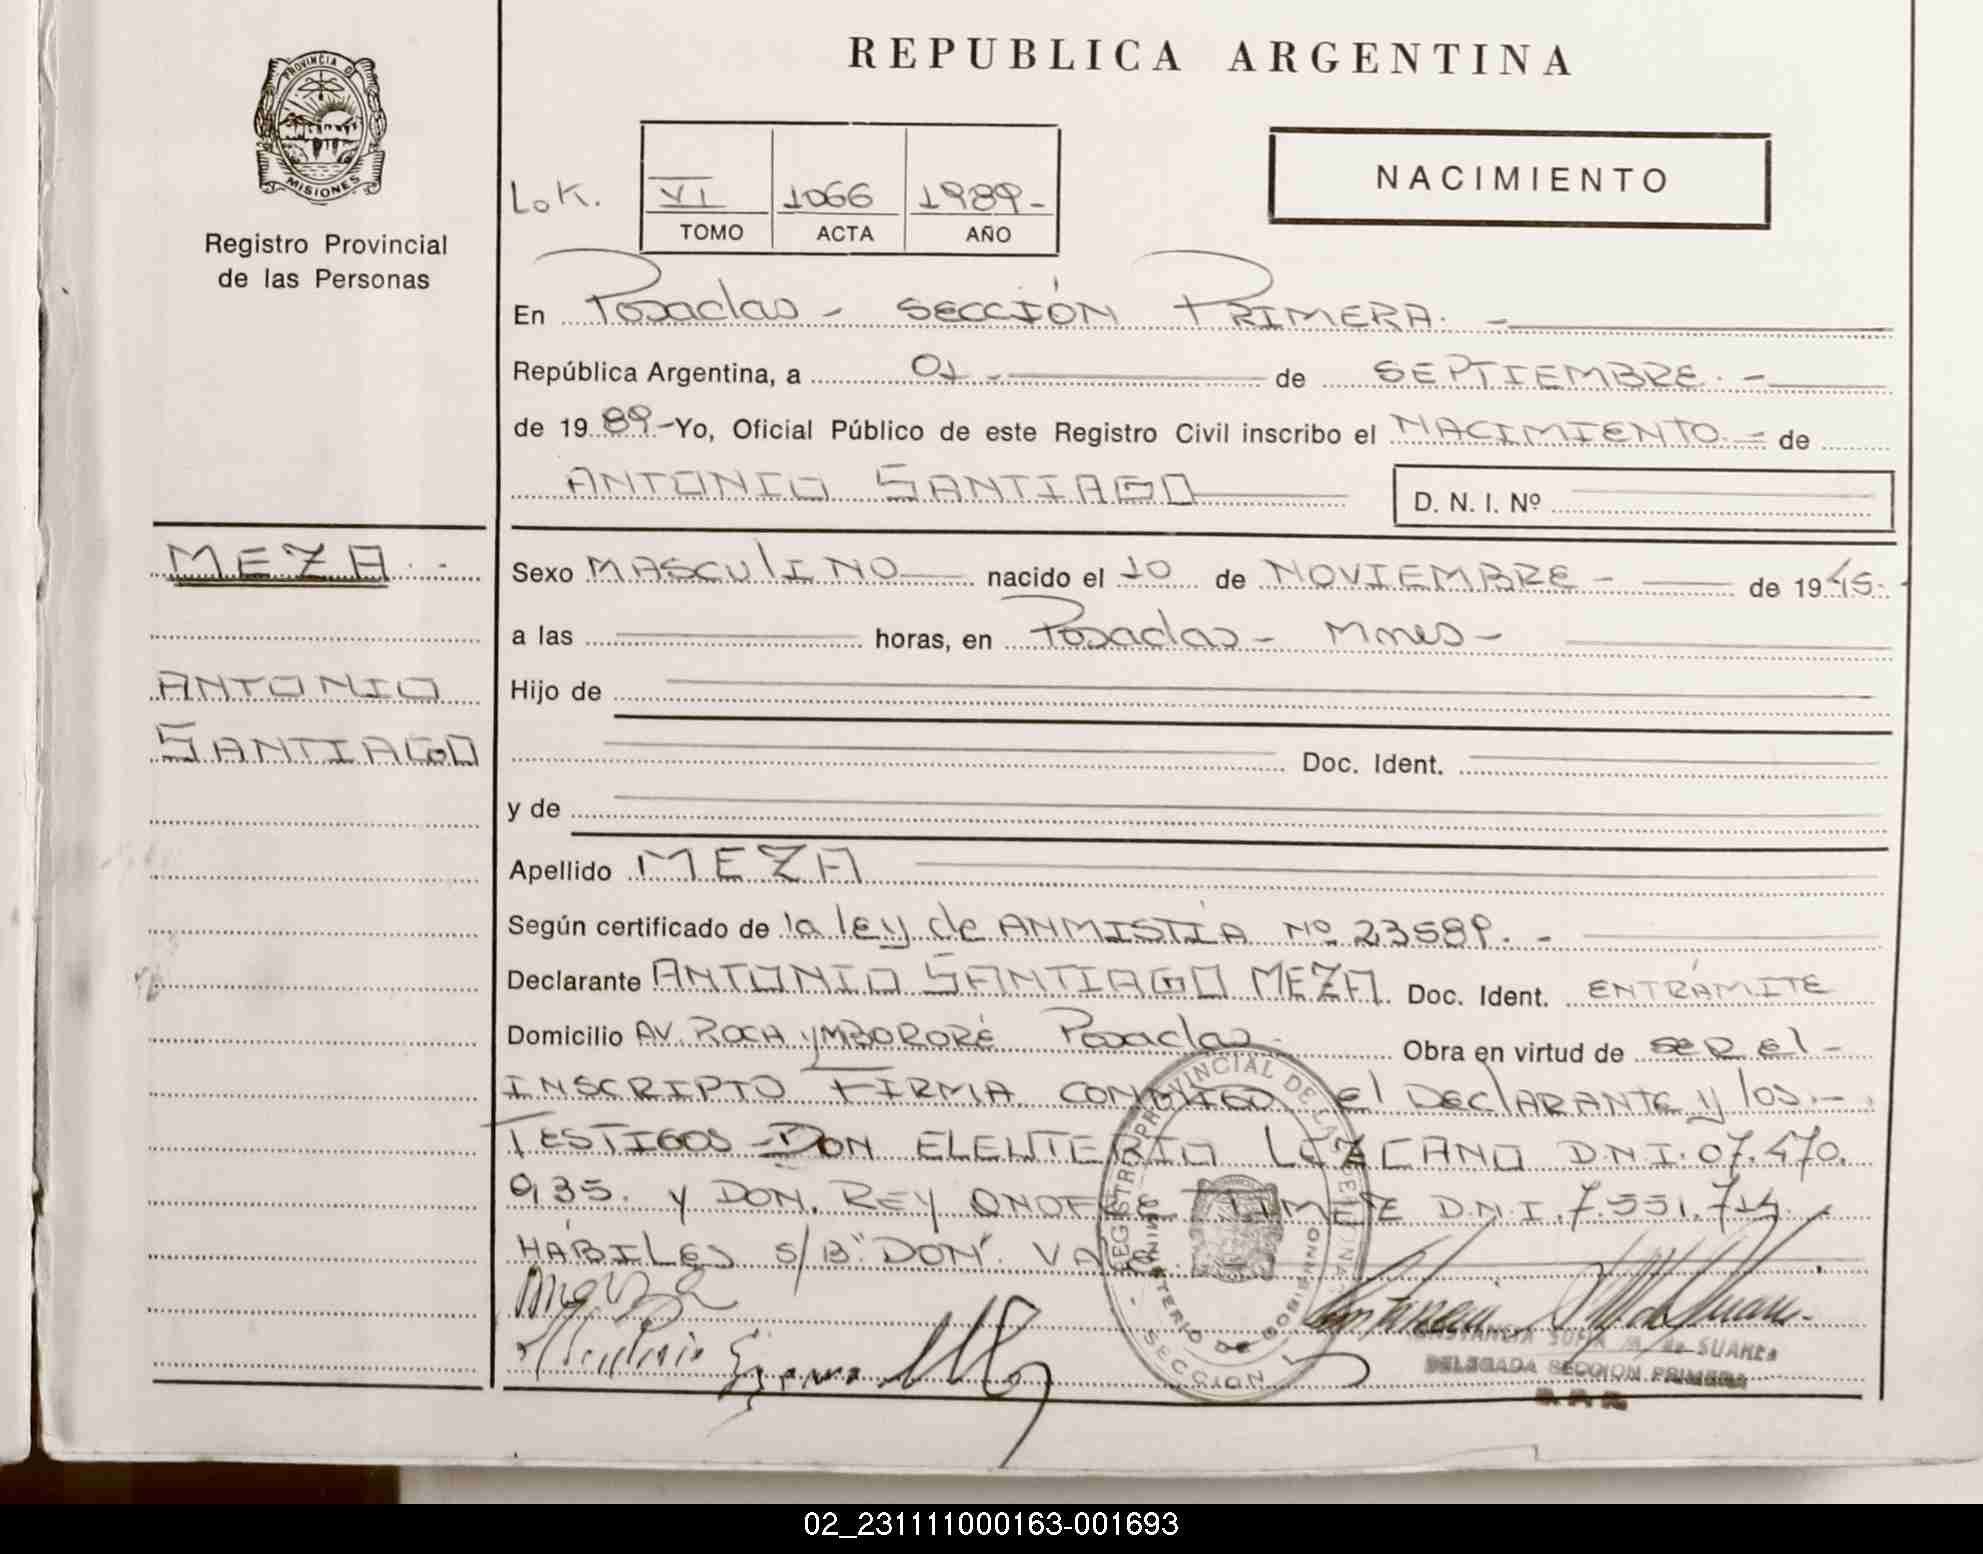 REPUBLICA ARGENTINA
PROVINCIA D
MISIONES
Registro Provincial
de las Personas
NACIMIENTO
LoK.
VI 1066 1989-
TOMO ACTA AÑO
En Posadas - SECCIÓN PRIMERA. -
República Argentina, a 01 - de SEPTIEMBRE. -
de 19 89.- Yo, Oficial Público de este Registro Civil inscribo el NACIMIENTO. - de
ANTONIO SANTIAGO D. N. I. Nº
MEZA. -
ANTONIO
SANTIAGO
Sexo MASCULINO nacido el 10 de NOVIEMBRE - de 19 45.-
a las horas, en Posadas - Mnes -
Hijo de
Doc. Ident.
y de
Apellido MEZA
Según certificado de la ley de ANMISTÍA Nº 23589. -
Declarante ANTONIO SANTIAGO MEZA. Doc. Ident. ENTRÁMITE
Domicilio AV. ROCA y MBORORÉ Posadas - Obra en virtud de SER El -
INSCRIPTO FIRMA CONMIGO El DEClARANTE y los.-
TESTIGOS - DON ELEUTERIO LEZCANO D.N.I. 07.470.
935. y DON. REY ONOFRE D.N.I. 7.551.714. -
HÁBILES S/B "DON". VALE.
REGISTRO PROVINCIAL DE LAS
MINISTERIO DE GOBIERNO
- SECCION 1
CONSTANCIA SOFIA M. de SUAREZ
DELEGADA SECCION PRIMERA
02_231111000163-001693